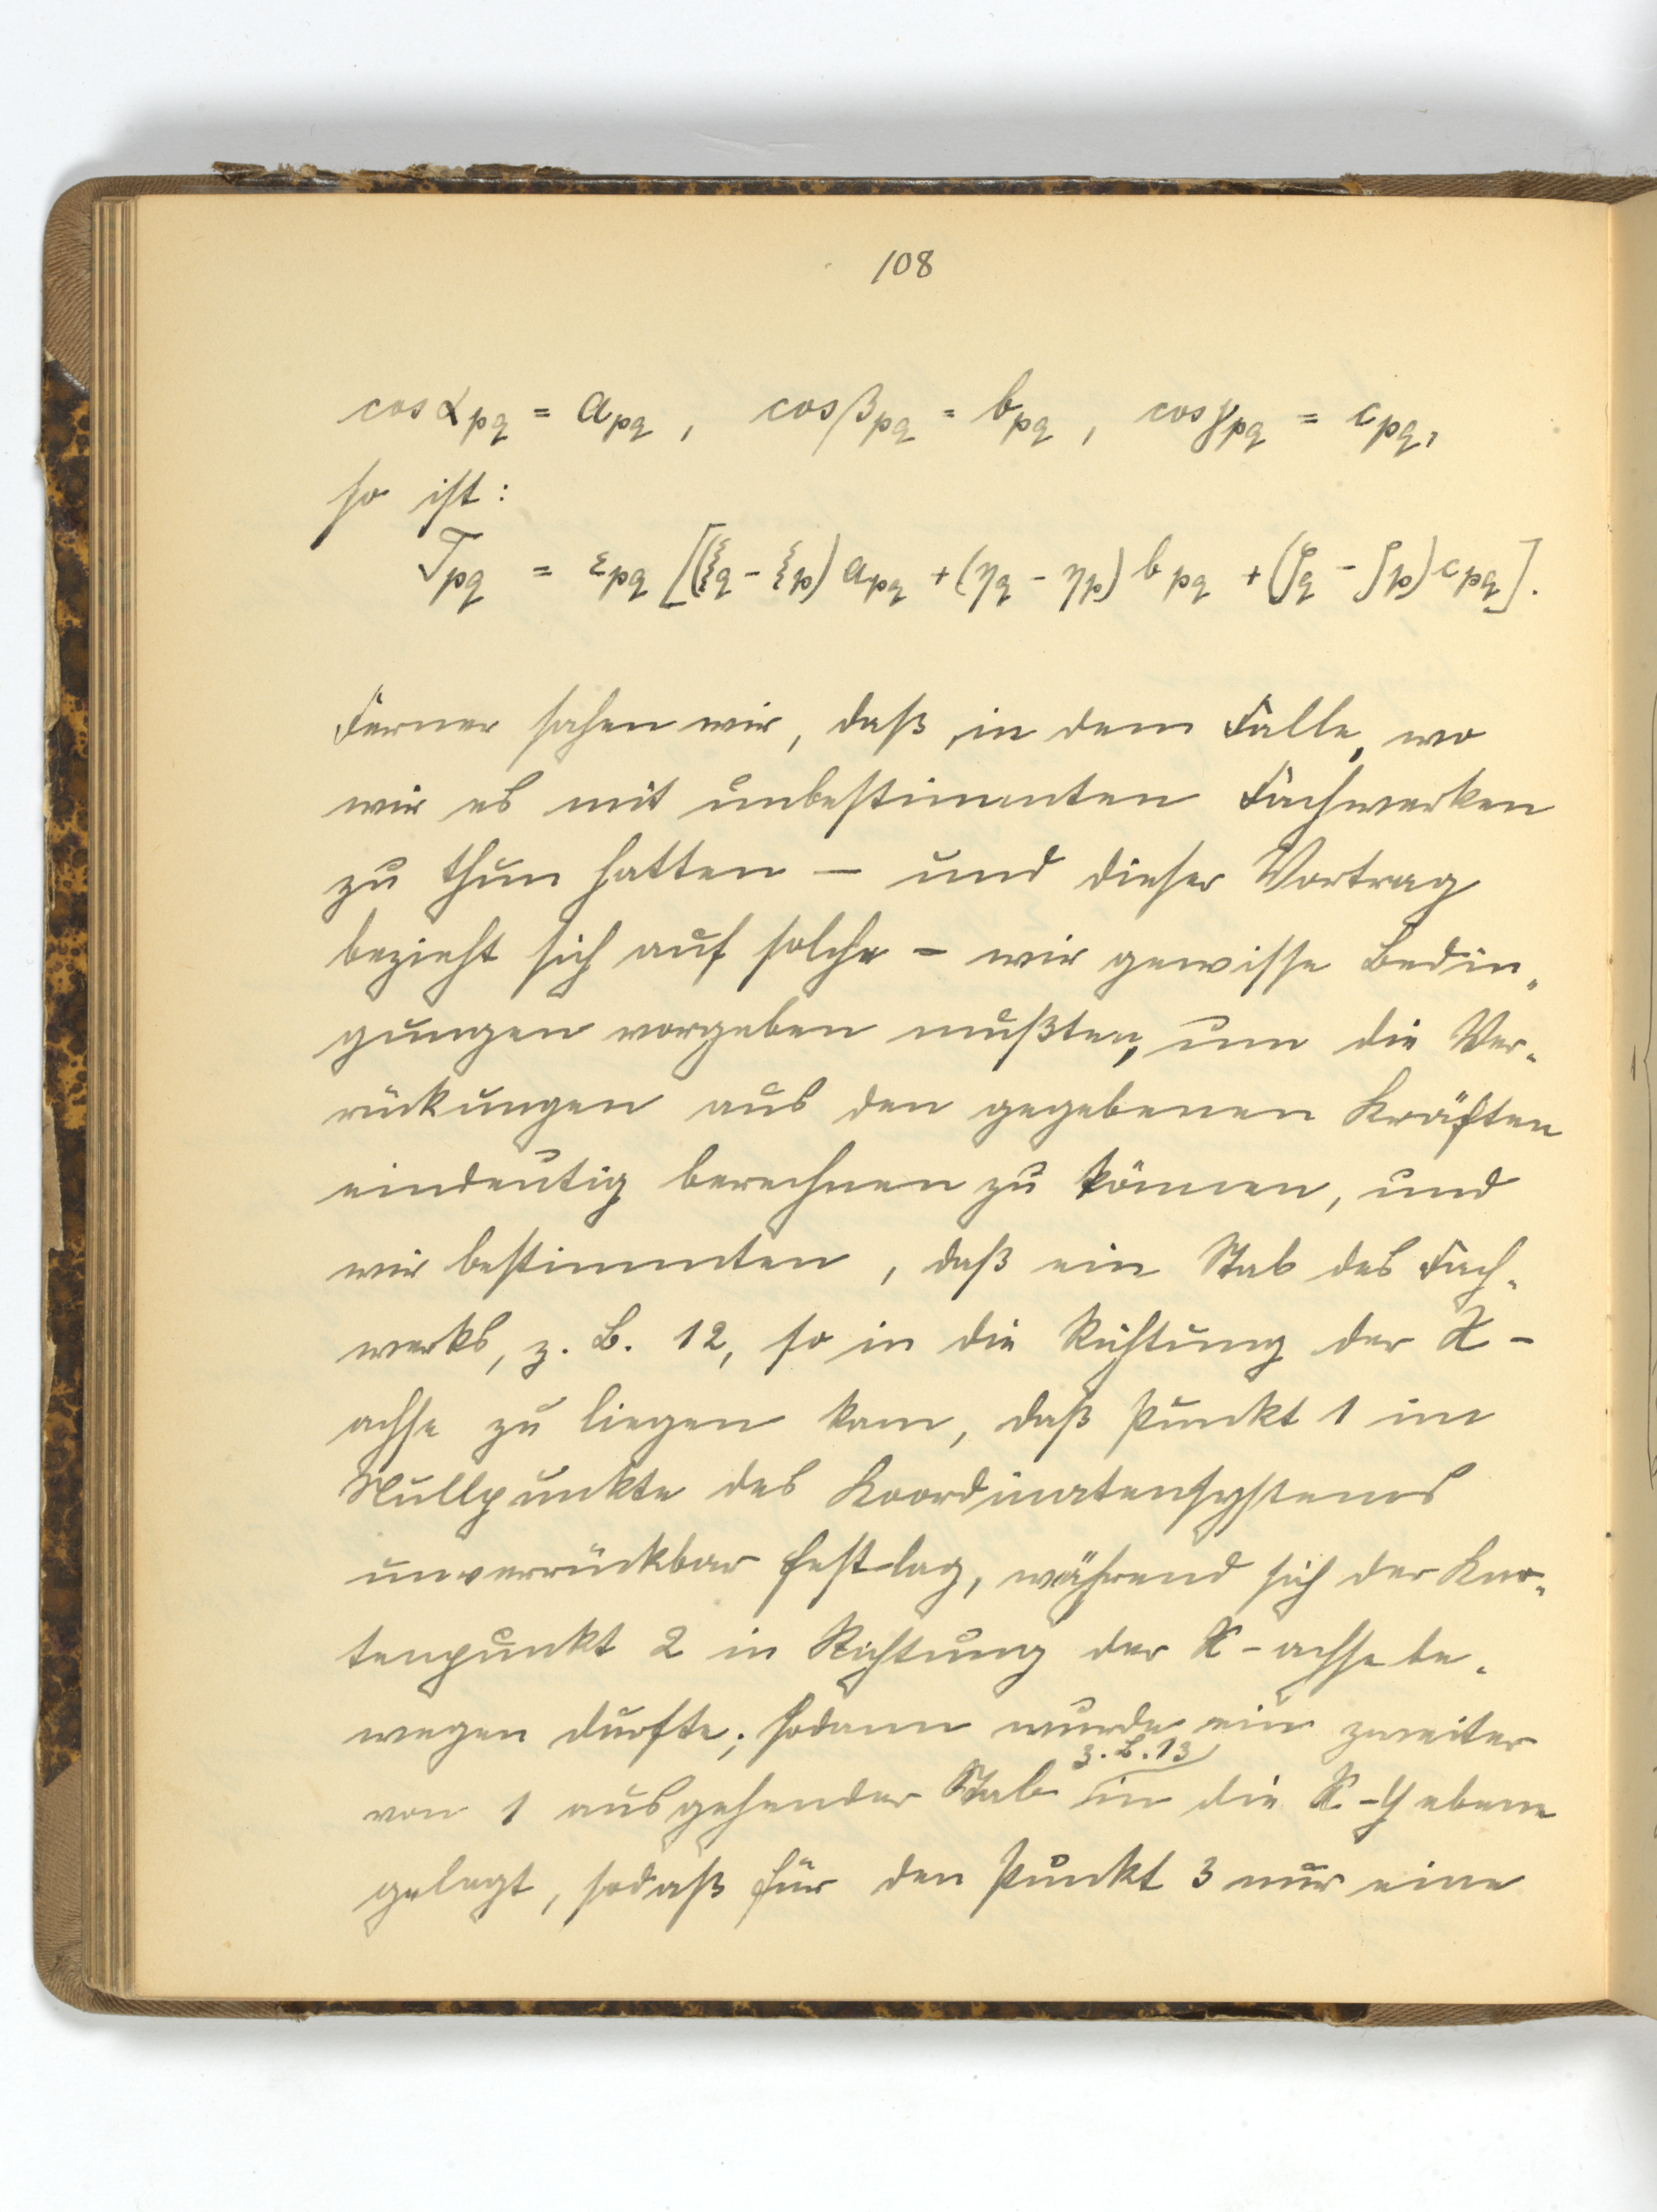 108
cos α_pq = a_pq , cos β_pq = b_pq , cos γ_pq = c_pq,
so ist:
T_pq = ε_pq [(ξ_q - ξ_p) a_pq + (η_q - η_p) b_pq + (ζ_q - ζ_p) c_pq].
Ferner sahen wir, daß, in dem Falle, wo
wir es mit unbestimmten Fachwerken
zu thun hatten — und dieser Vortrag
bezieht sich auf solche — wir gewisse Bedin„
gungen vorgeben mußten, um die Ver„
rückungen aus den gegebenen Kräften
eindeutig berechnen zu können, und
wir bestimmten, daß ein Stab des Fach„
werks, z. B. 12, so in die Richtung der X-
achse zu liegen kam, daß Punkt 1 im
Nullpunkte des Koordinatensystems
unverrückbar festlag, während sich der Kno„
tenpunkt 2 in Richtung der X-achse be„
wegen durfte; sodann wurde ein zweiter
z. B. 13
von 1 ausgehender Stab in die X-Y ebene
gelegt, sodaß für den Punkt 3 nur eine